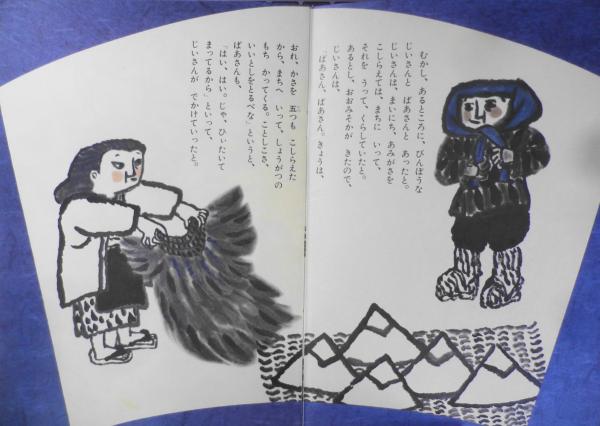 むかし、あるところに、びんぼうな
じいさんと ばあさんと あったと。
じいさんは、まいにち、あみがさを
こしらえては、まちに いって、
それを うって、くらしていたと。
あるとし、おおみそかが きたので、
じいさんは、
「ばあさん、ばあさん。きょうは、
おれ、かさを 五つも こしらえた
から、まちへ いって、しょうがつの
もち かってくる。ことしこさ、
いいとしをとるべな」というと、
ばあさんも、
「はい、はい。じゃ、ひぃたいて
まってるから」といって、
じいさんが でかけていったと。